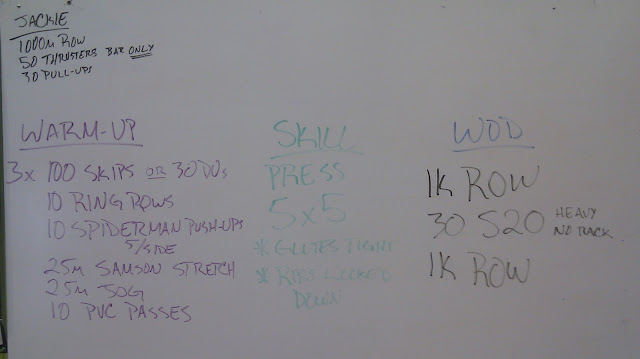 JACKIE
1000M ROW
50 THRUSTERS BAR ONLY
30 PULL-UPS
WARM-UP
3x 100 SKIPS OR 30 DUs
10 RING ROWS
10 SPIDERMAN PUSH-UPS
5/SIDE
25M SAMSON STRETCH
25M JOG
10 PVC PASSES
SKILL
PRESS
5x5
* GLUTES TIGHT
* RIBS LOCKED
DOWN
WOD
1K ROW
30 S2O HEAVY
NO RACK
1K ROW